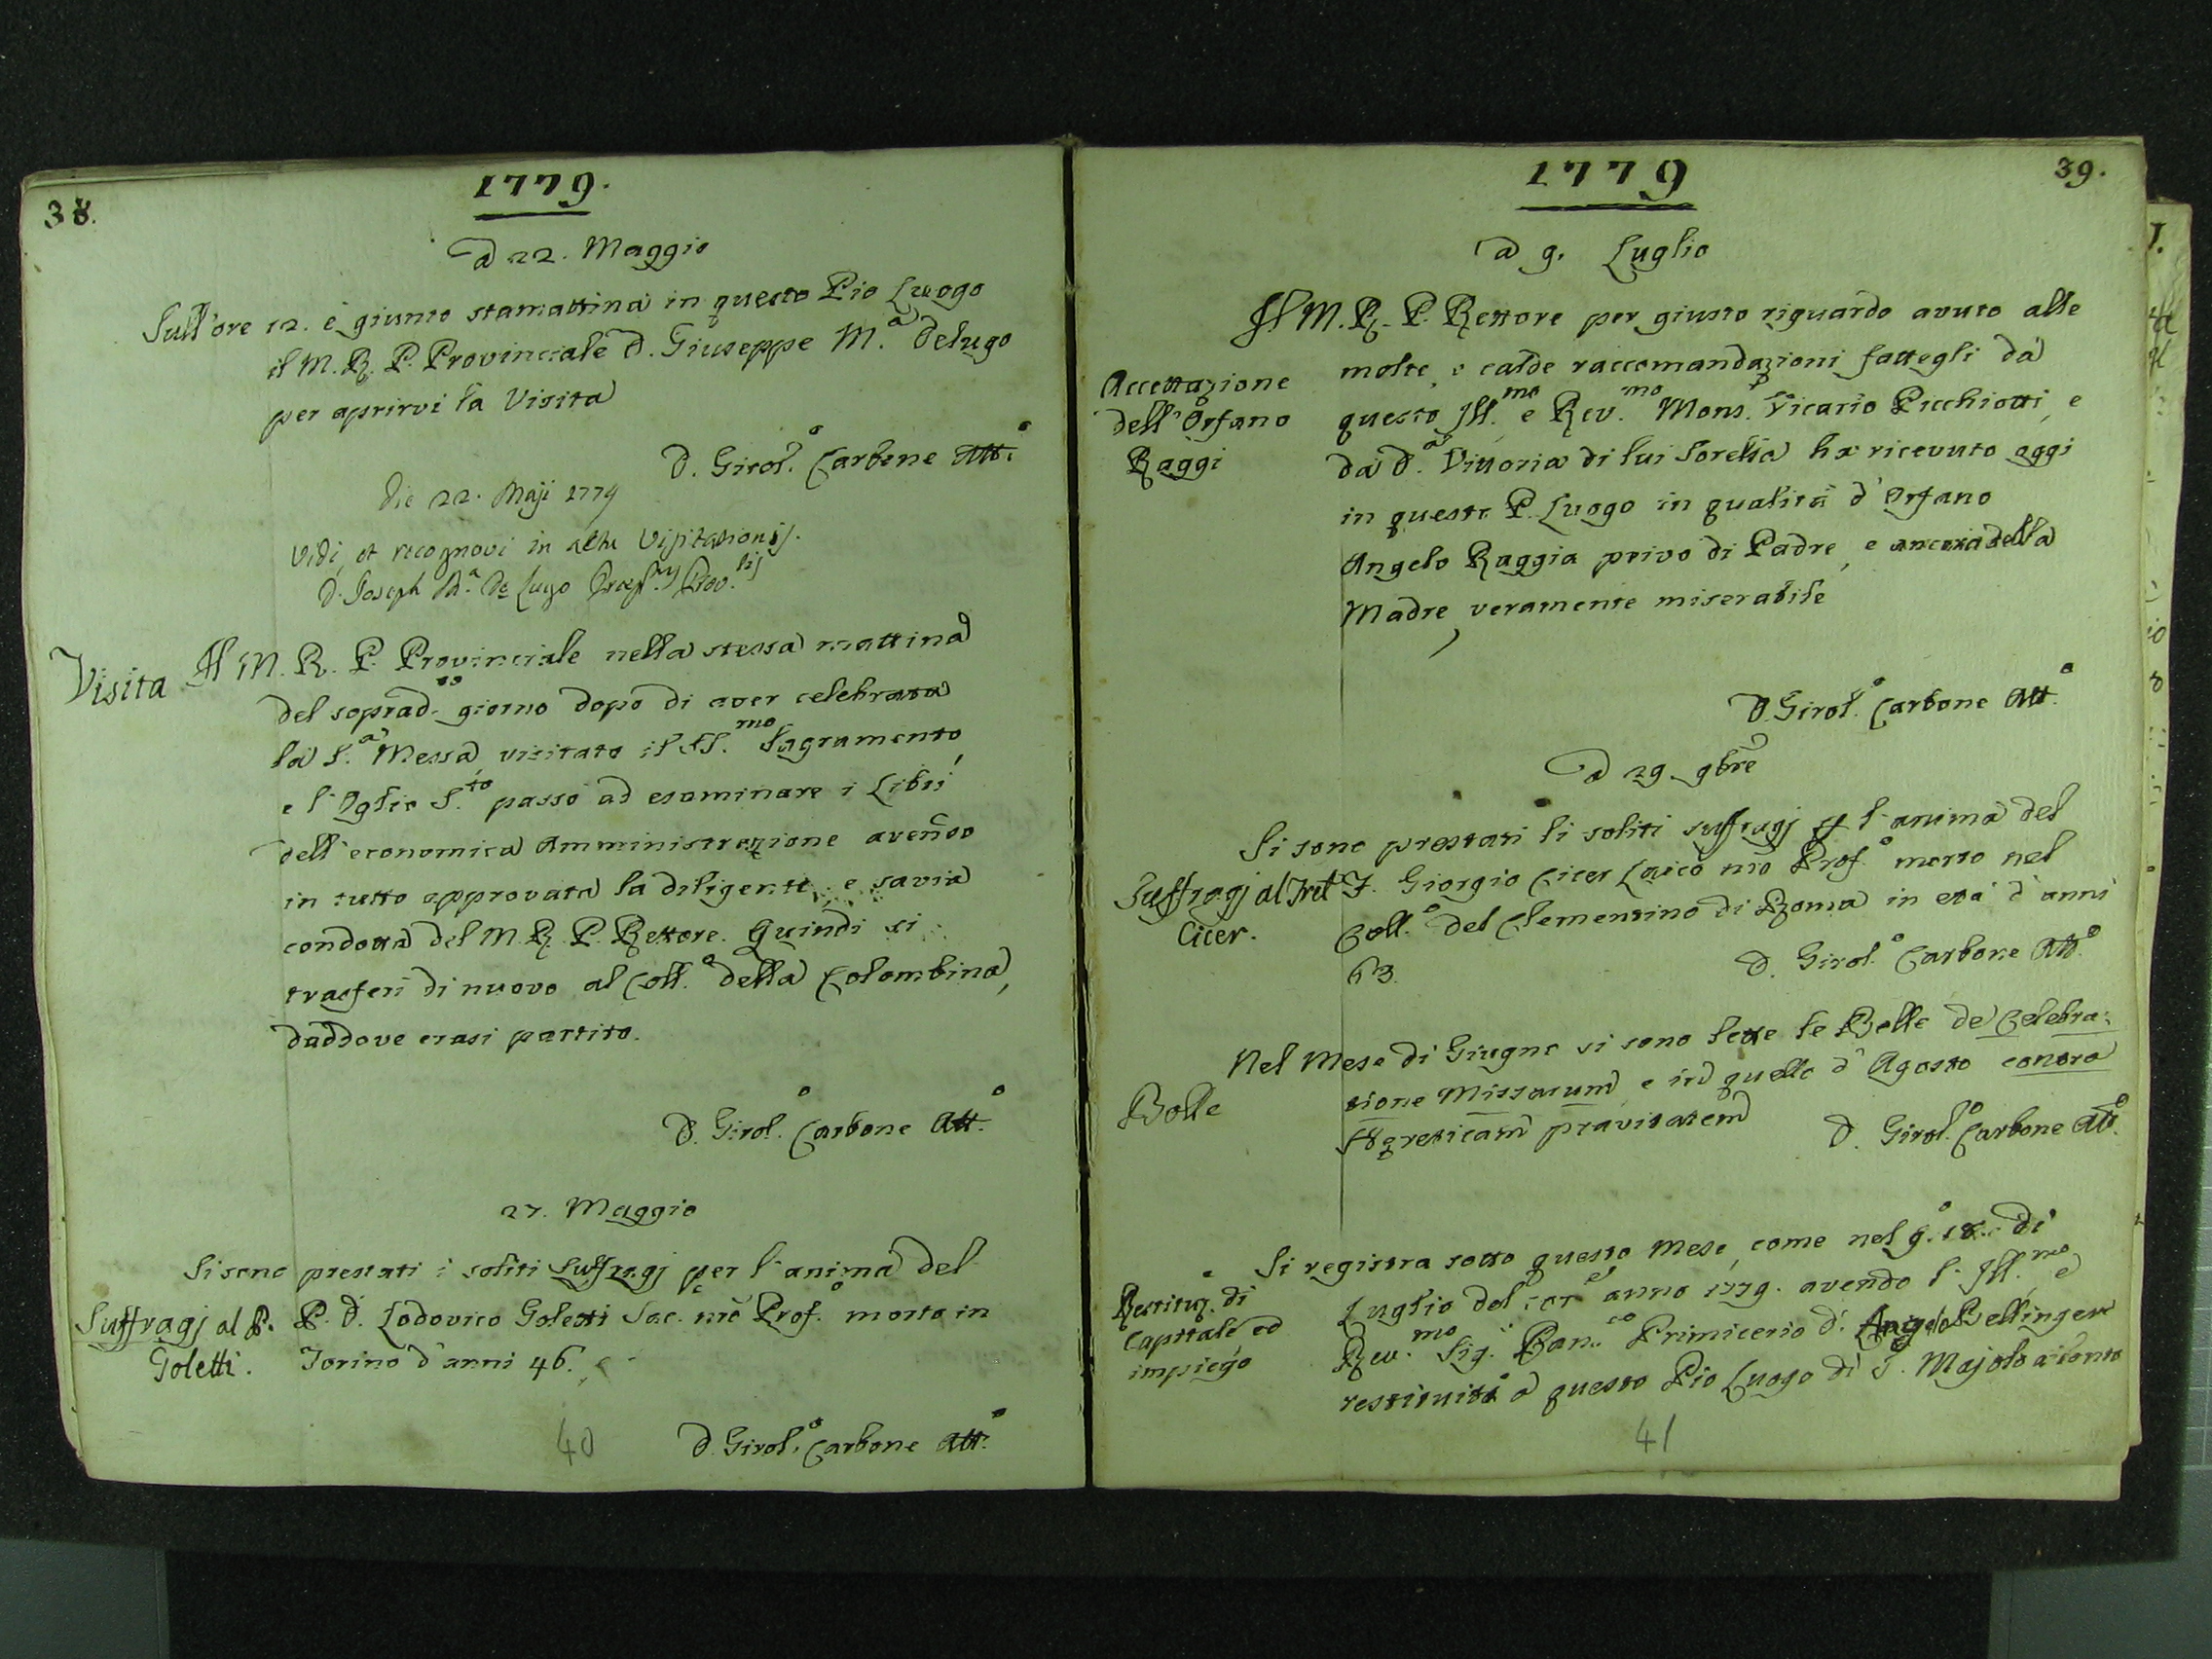 38.
1779.
A 22. Maggio
Sull'ore 12. è giunto stamattina in questo Pio Luogo
il M. R. P. Provinciale D. Giuseppe M.a Delugo
per aprirvi la Visita
D. Girol.o Carbone Att.o
Die 22. Maji 1779
Vidi, et recognovi in actu Visitationis.
D. Joseph M.a De Lugo Præp.us Prov.lis
Visita
Il M. R. P. Provinciale nella stessa mattina
del soprad.o giorno dopo di aver celebrata
la S.a Messa, visitato il SS.mo Sagramento,
e l'Oglio S.to passò ad esaminare i Libri
dell'economica Amministrazione avendo
in tutto approvata la diligente, e savia
condotta del M. R. P. Rettore. Quindi si
trasferì di nuovo al Coll.o della Colombina,
daddove erasi partito.
D. Girol.o Carbone Att.o
27. Maggio
Si sono prestati i soliti Suffragj per l'anima del
Suffragj al P.
Goletti.
P. D. Lodovico Goletti Sac. nrō Prof.o morto in
Torino d'anni 46.
D. Girol.o Carbone Att.o
40
1779
39.
A 9. Luglio
Il M. R. P. Rettore per giusto riguardo avuto alle
Accettazione
dell'Orfano
Raggi
molte, e calde raccomandazioni fattegli da
questo Ill.mo e Rev.mo Mons. Vicario Picchiotti, e
da D.a Vittoria di lui Sorella ha ricevuto oggi
in questo P. Luogo in qualità d'Orfano
Angelo Raggia privo di Padre, e ancora della
Madre, veramente miserabile
D. Girol.o Carbone Att.o
A 29. 9bre
Si sono prestati li soliti suffragj p l'anima del
Suffragj al Frat
Cicer.
F. Giorgio Cicer Laico nrō Prof.o morto nel
Coll.o del Clementino di Roma in età d'anni
63.
D. Girol.o Carbone Att.o
Nel Mese di Giugno si sono lette le Bolle de Celebra-
Bolle
tione Missarum, e in quello d'Agosto contra
Hæreticam pravitatem
D. Girol.o Carbone Att.o
Si registra sotto questo Mese, come nel g.o 18. di
Restituz.e di
Capitale ed
impiego
Luglio del cor.e anno 1779. avendo l'Ill.mo e
Rev.mo Sig. Can.co Primicerio D. Angelo Bellingeri
restituito a questo Pio Luogo di S. Majolo a conto
41